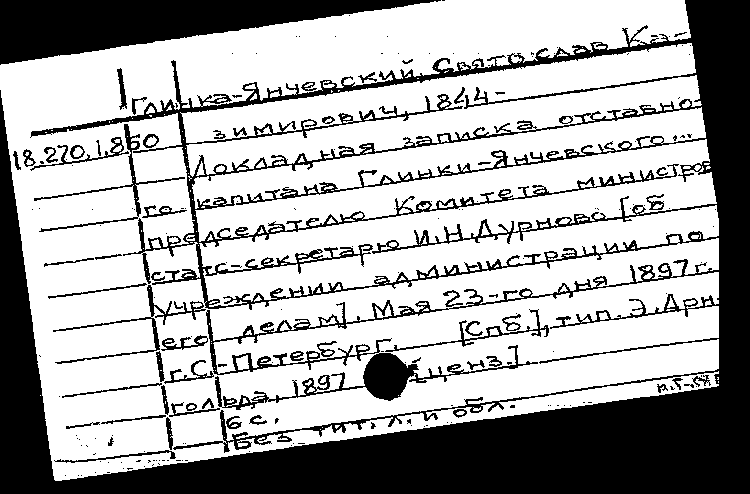 Глинка-Янчевский, Святослав Ка-
18.270.1.850 зимирович, 1844-
Докладная записка отставно-
го капитана Глинки-Янчевского...
председателю Комитета министров
статс-секретарю И.Н.Дурново [об
учреждении администрации по
его делам]. Мая 23-го дня 1897г.
г.С.-Петербург. [Спб.], тип. Э.Арн-
гольда, 1897 ценз.].
6 с.
Без тит. л. и обл.